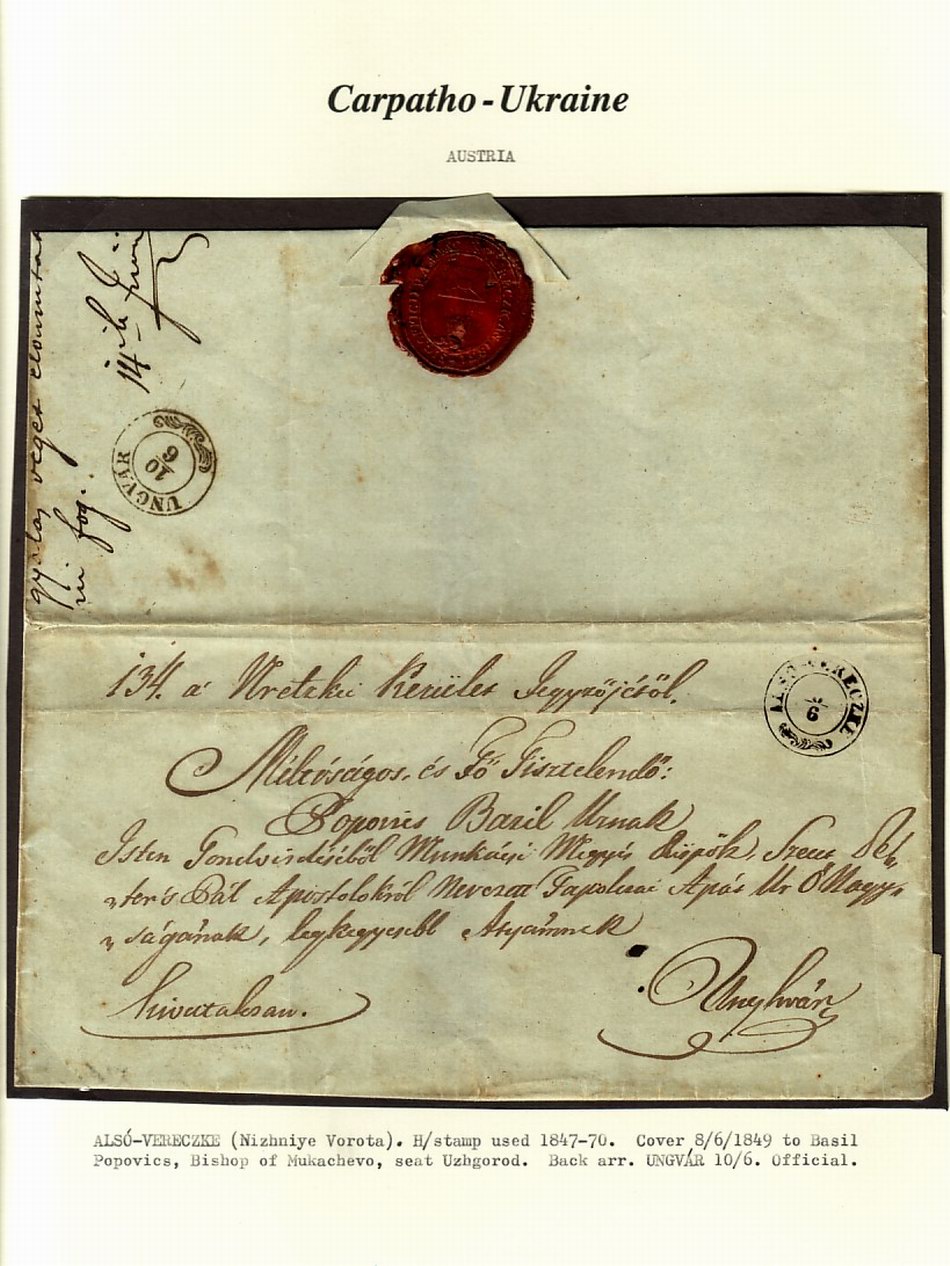 Carpatho-Ukraine
AUSTRIA
14 Juni
UNGVÁR
10
6
134. a' Kerület Jegyzőjétől.
ALSÓ-VERECZKE
6
Méltóságos és Fő Tisztelendő:
Popovics Bazil Urnak
Isten Gondviseléséből Munkácsi Megyés Püspök, Szent
Pál Apostolokról Nevezett Tapolczai Apát Ur Ő Nagy-
ságának, legkegyesebb Atyámnak
hivatalosan.
Unghvár
ALSÓ-VERECZKE (Nizhniye Vorota). H/stamp used 1847-70. Cover 8/6/1849 to Basil
Popovics, Bishop of Mukachevo, seat Uzhgorod. Back arr. UNGVÁR 10/6. Official.